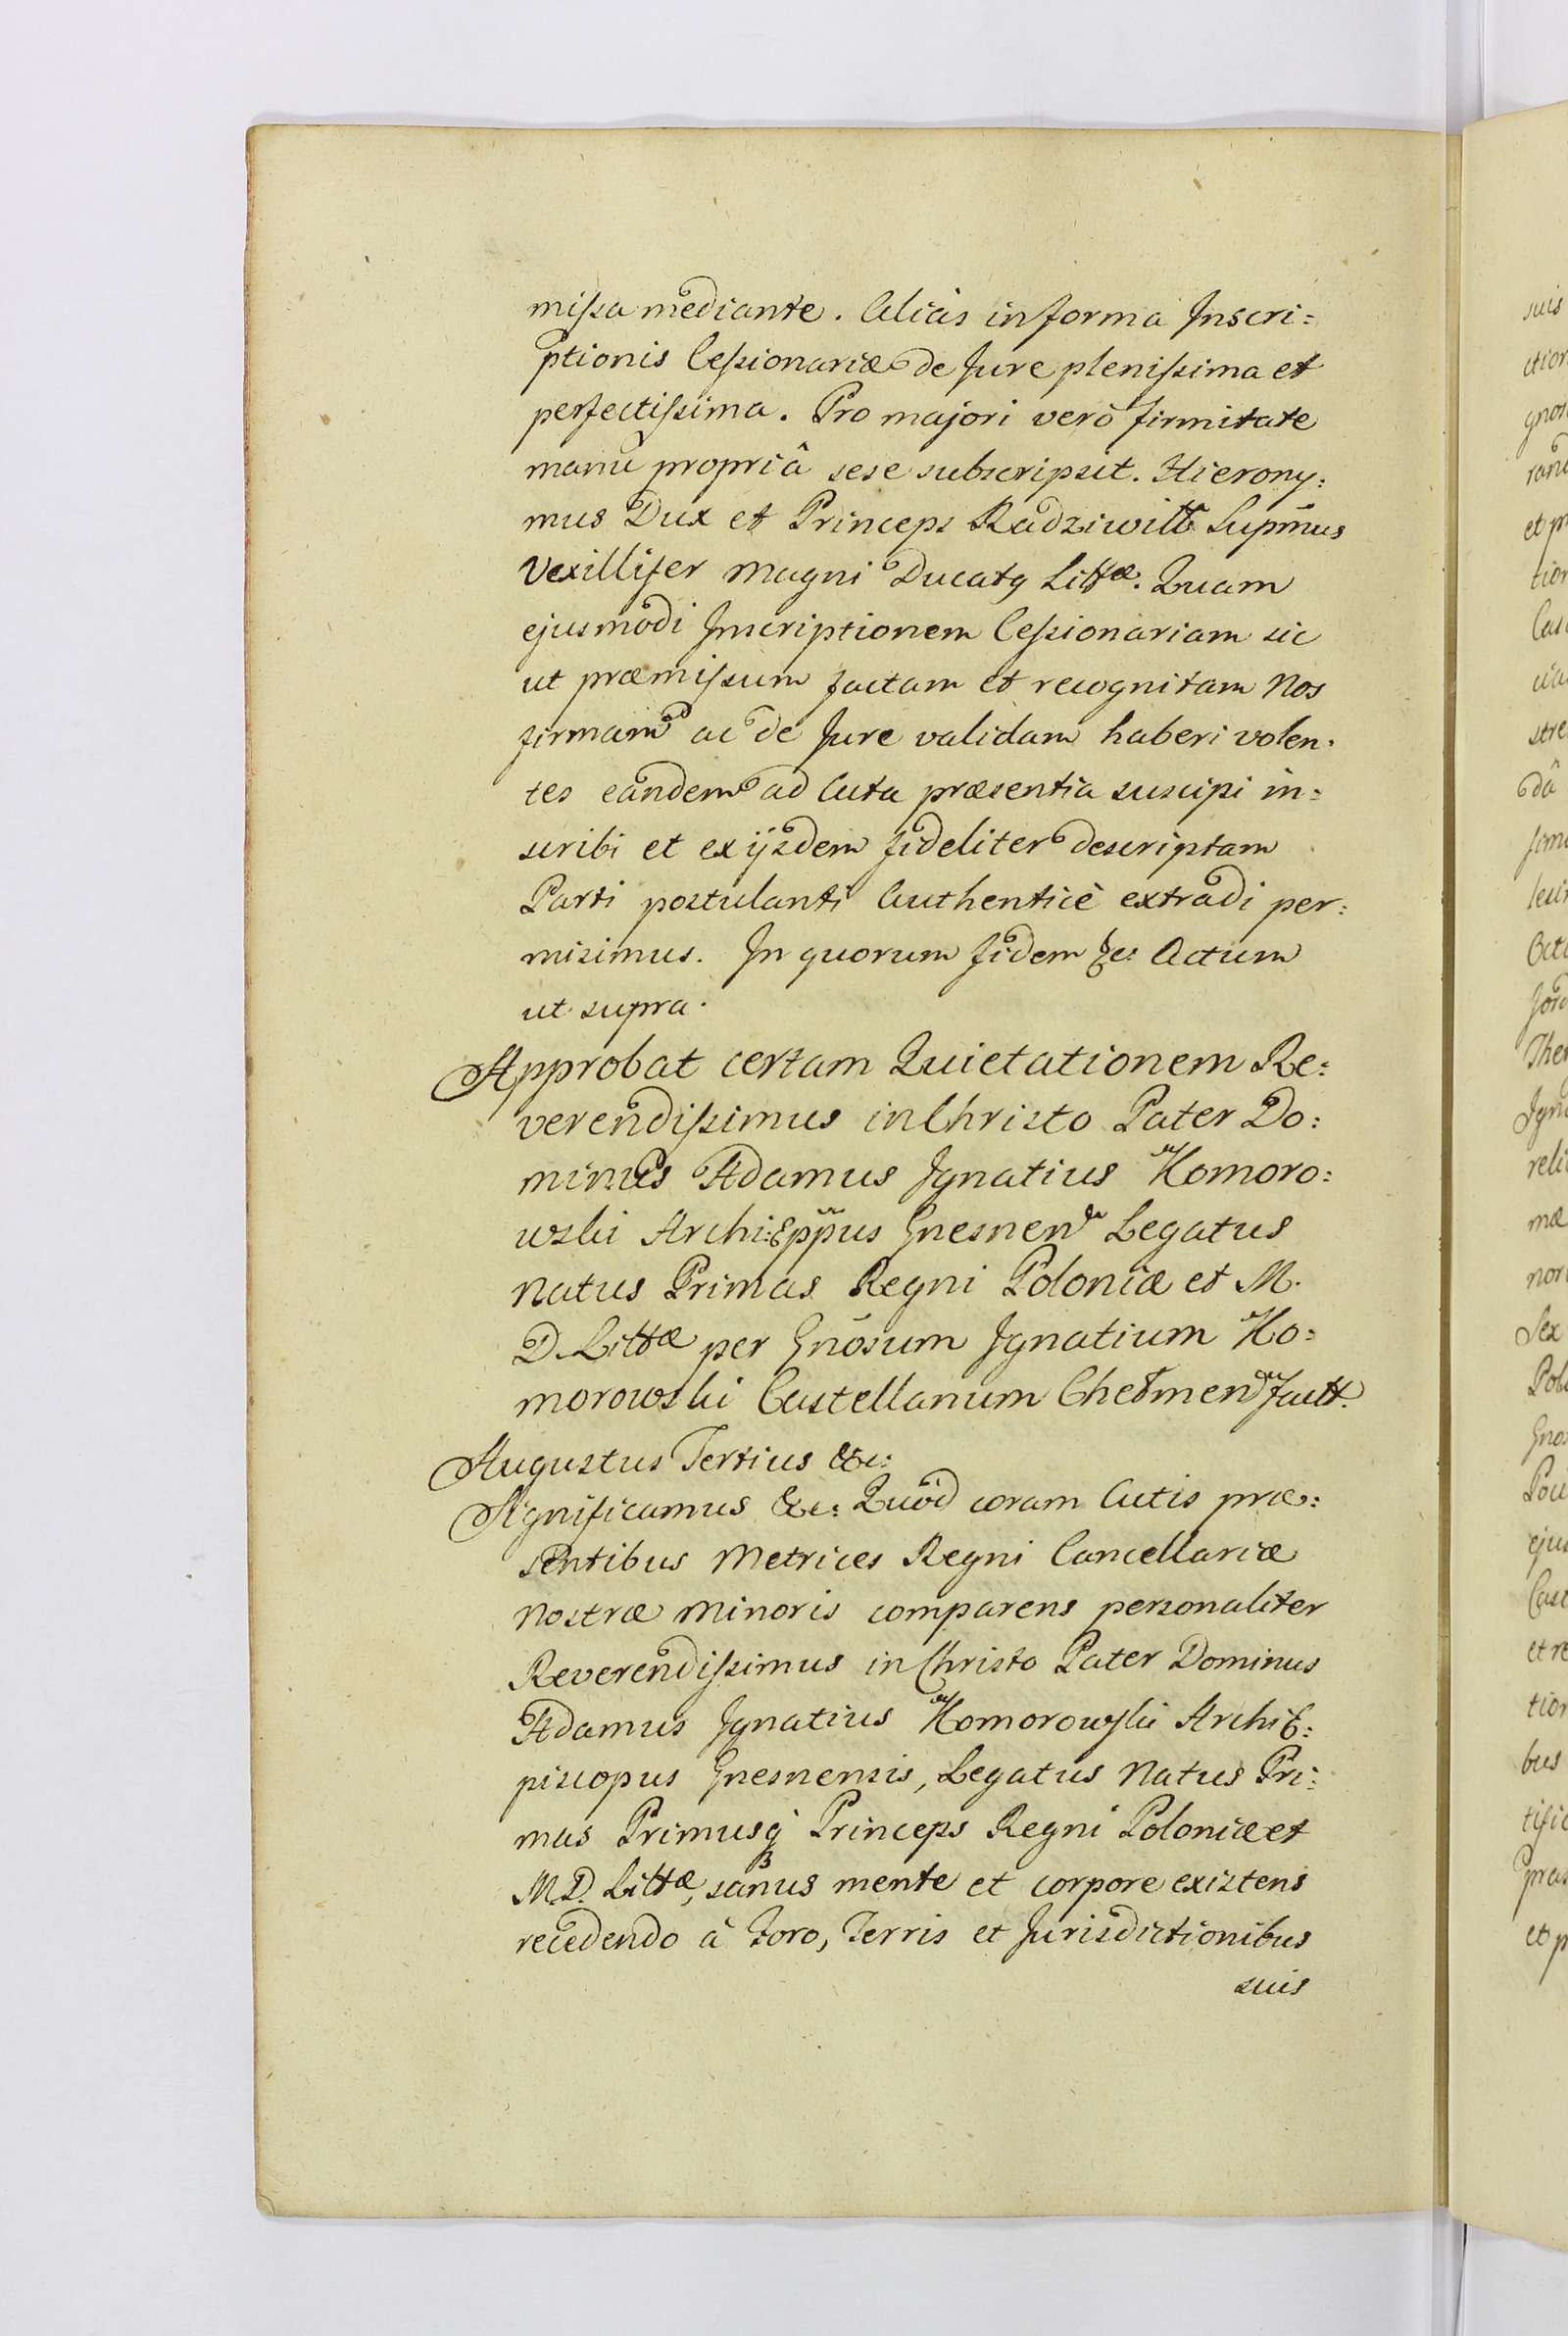 missa mediante. Aliàs in forma Inscri=
ptionis Cessionariæ de Jure plenissima et
perfectissima. Pro majori verò firmitate
manu propriâ sese subscripsit. Hierony:
mus Dux et Princeps Radziwiłł Supm̃us
Vexillifer Magni Ducatg Littæ. Quam
ejusmodi Inscriptionem Cessionariam sic
ut præmissum factam et recognitam Nos
firmam ac de Jure validam haberi volen.
tes eandem ad Acta præsentia suscipi in=
scribi et ex ijsdem fideliter descriptam
Parti postulanti Authenticè extradi per:
misimus. In quorum fidem &c: Actum
ut supra.
Approbat certam Quietationem Re:
verendissimus in Christo Pater Do:
minus Adamus Ignatius Komoro:
wski Archi:Epp̃us Gnesnen Legatus
Natus Primas Regni Poloniæ et M.
D. Littæ per Gnõsum Ignatium Ko=
morowski Castellanum Chełmen factt.
Augustus Tertius &c:
Significamus &c: Quòd coram Actis præ:
sentibus Metrices Regni Cancellariæ
Nostræ Minoris comparens personaliter
Reverendissimus in Christo Pater Dominus
Adamus Ignatius Komorowski Archi E:
piscopus Gnesnensis, Legatus Natus Pri:
mas Primusq Princeps Regni Poloniæ et
M.D. Littæ, sanus mente et corpore existens
recedendo à Foro, Terris et Jurisdictionibus
suis